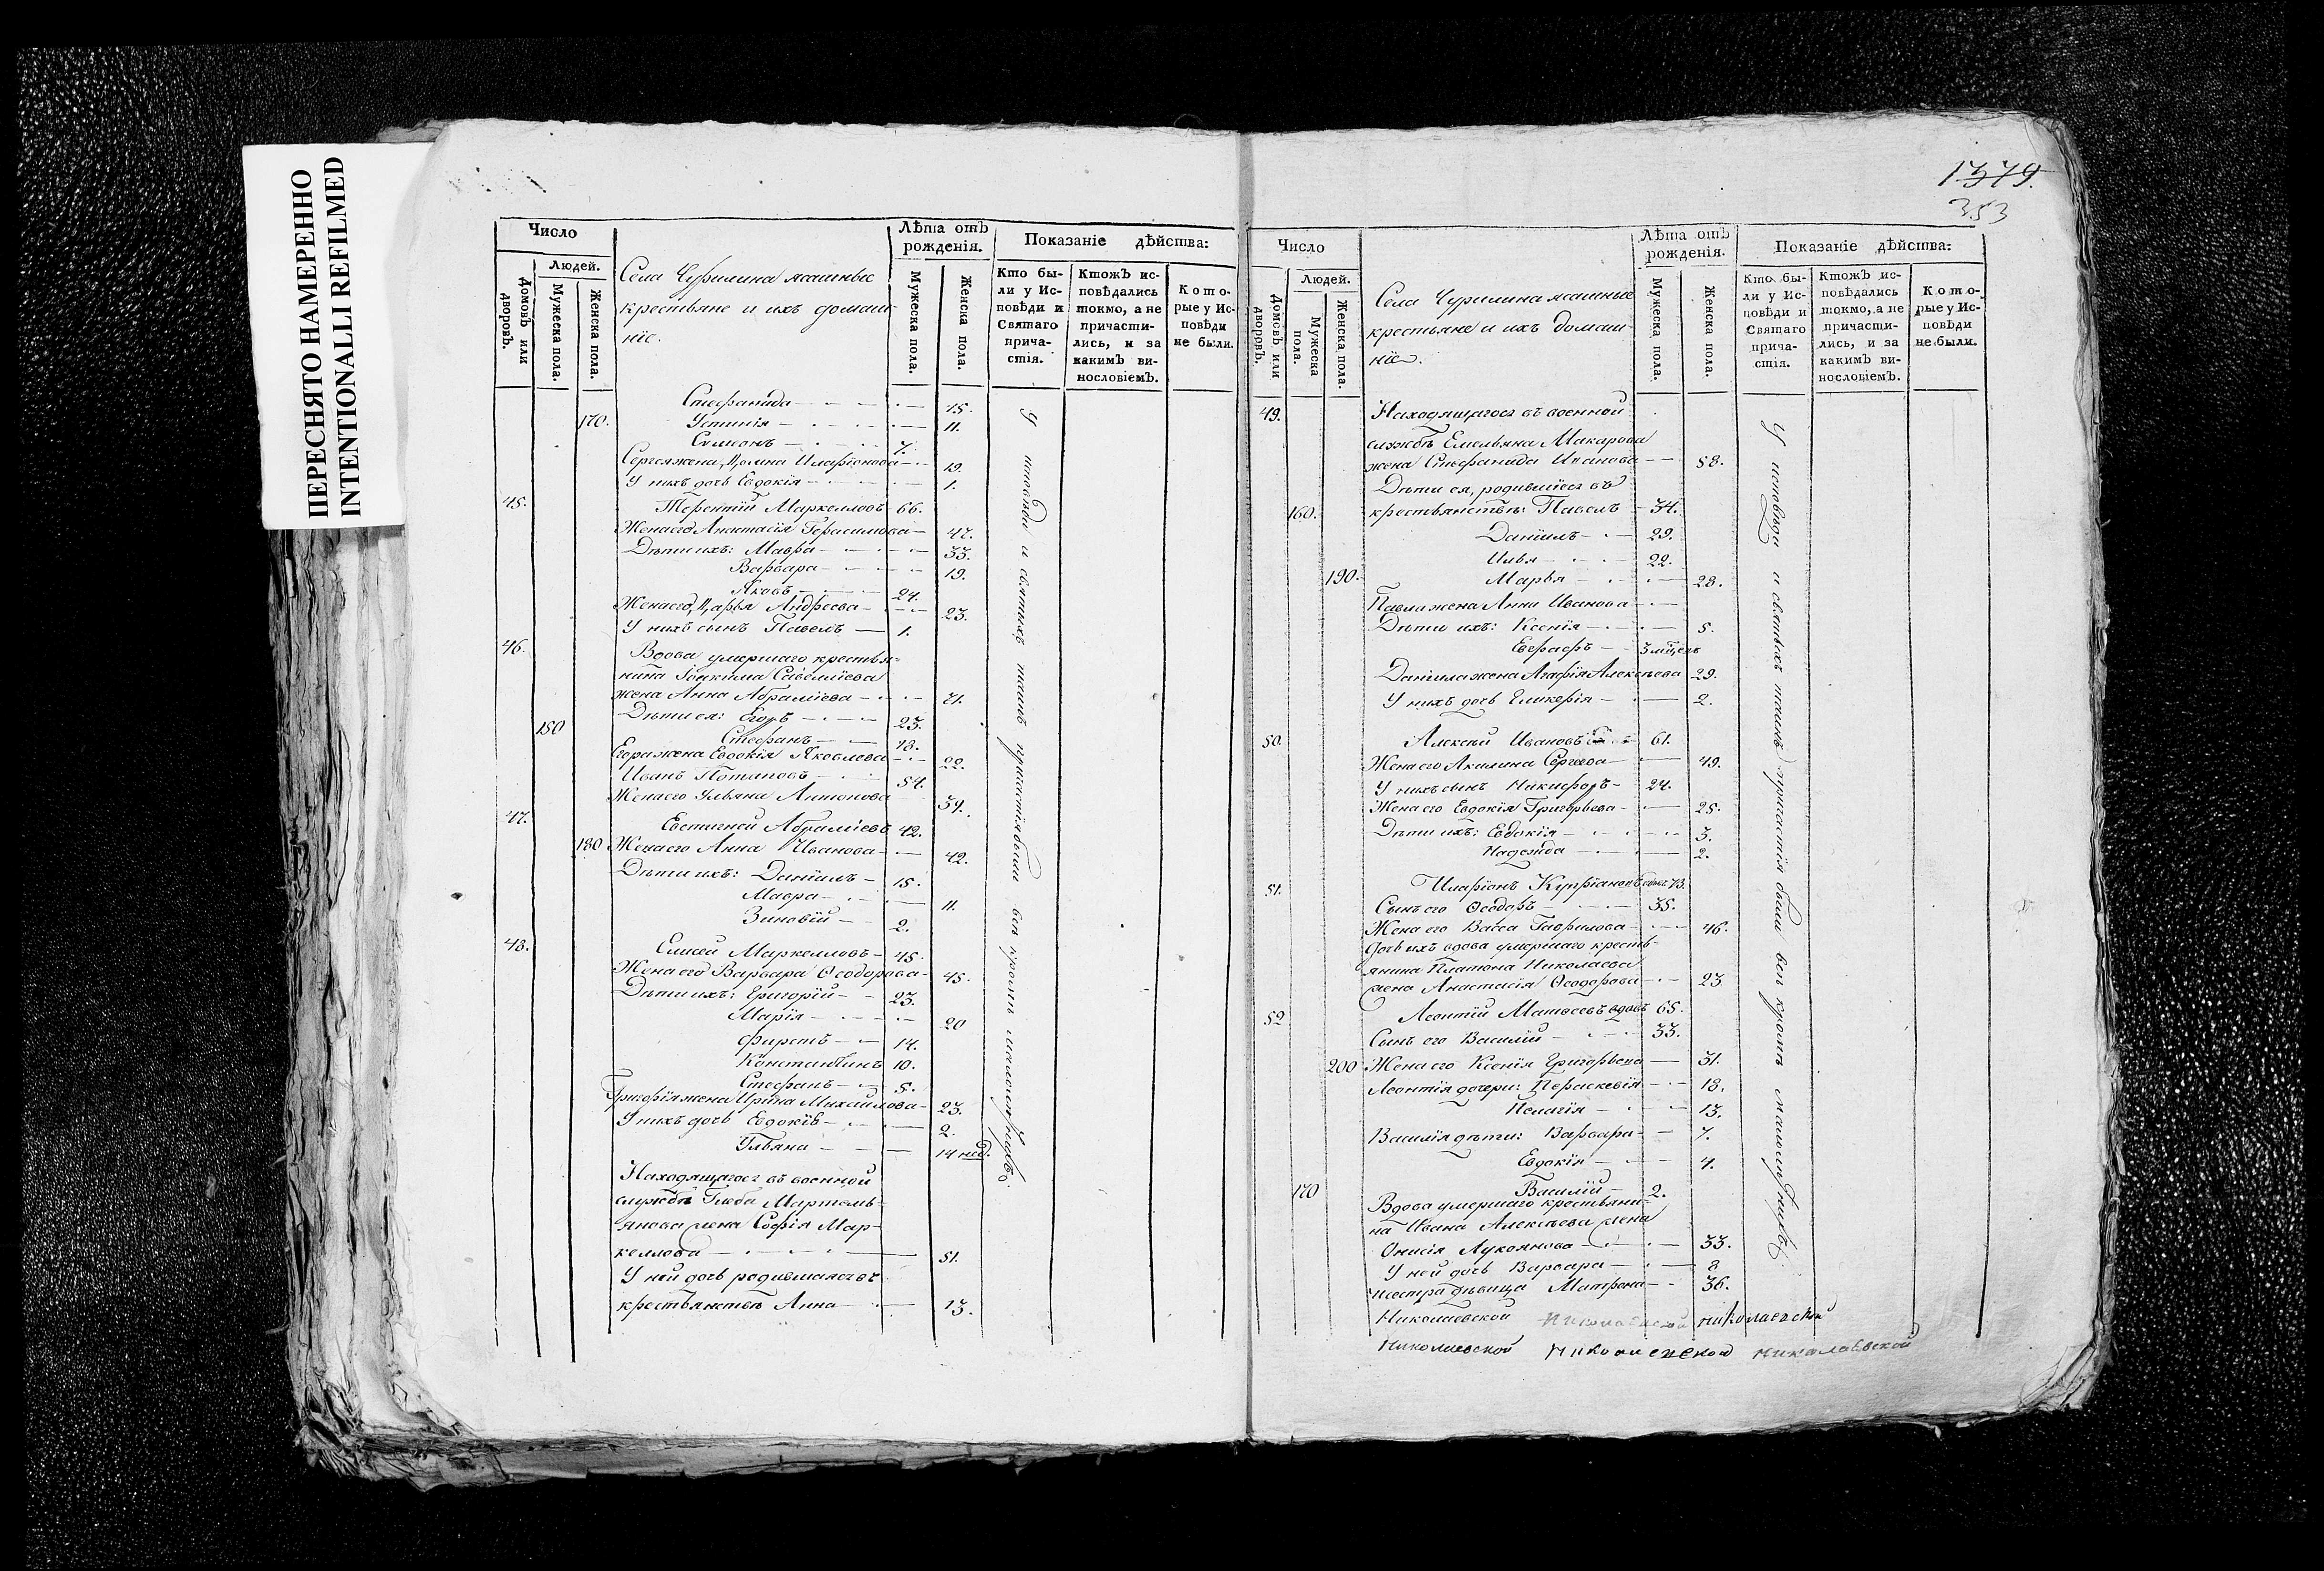 ПЕРЕСНЯТО НАМЕРЕННО
INTENTIONALLI REFILMED
Число
Людей.
Домовъ или дворовъ.
Мужеска пола.
Женска пола.
Села Чурилина ясашные
крестьяне и ихъ домаш-
ніе.
Лѣта отъ рожденія.
Мужеска пола.
Женска пола.
Показаніе дѣйства:
Кто бы-
ли у Ис-
повѣди и
Святаго
прича-
стія.
Ктожъ ис-
повѣдались
токмо, а не
причасти-
лись, и за
какимъ ви-
нословіемъ.
Кото-
рые у Ис-
повѣди
не были.
Стефанида 15.
170. Устинія 11.
Симеонъ 7.
Сергея жена Иларіонова 19.
У нихъ дочь Евдокія 1.
45. Терентій Маркелловъ 66.
Жена его Анастасія Герасимова 47.
Дѣти ихъ: Мавра 33.
Варвара 19.
Яковъ 24.
Жена его Дарья Андреева 23.
У нихъ сынъ Павелъ 1.
46. Вдова умершаго крестья-
нина Іоакима Савелліева
жена Анна Абраміева 71.
Дѣти ея: Егоръ 23.
150 Стефанъ 18.
Егора жена Евдокія Яковлева 22.
Иванъ Потаповъ 54.
Жена его Ульяна Антонова 59.
47. Евстигней Абраміевъ 42.
180 Жена его Анна Иванова 42.
Дѣти ихъ: Даніилъ 15.
Мавра 11.
Зиновій 2.
48. Елисей Маркелловъ 45.
Жена его Варвара Ѳеодорова 45.
Дѣти ихъ: Григорій 23.
Марія 20
Фирстъ 14.
Константинъ 10.
Стефанъ 5.
Григорія жена Ирина Михайлова 23.
У нихъ дочь Евдокія 2.
Ульяна 14 нед.
Находящагося въ военной
службѣ Глеба Мартемь-
янова жена Софія Мар-
келлова 51.
У ней дочь родившаяся въ
крестьянствѣ Анна 13.
У исповѣди и святыхъ таинъ причастія были всѣ кромѣ малолѣтнихъ.
1379.
353
Число
Людей.
Домовъ или дворовъ.
Мужеска пола.
Женска пола.
Села Чурилина ясашные
крестьяне и ихъ домаш-
ніе.
Лѣта отъ рожденія.
Мужеска пола.
Женска пола.
Показаніе дѣйства:
Кто бы-
ли у Ис-
повѣди и
Святаго
прича-
стія.
Ктожъ ис-
повѣдались
токмо, а не
причасти-
лись, и за
какимъ ви-
нословіемъ.
Кото-
рые у Ис-
повѣди
не были.
49. Находящагося въ военной
службѣ Емельяна Макарова
жена Стефанида Иванова 58.
Дѣти ея, родившіеся въ
160. крестьянствѣ: Павелъ 34.
Даніилъ 29.
Илья 22.
190. Марья 28.
Павла жена Анна Иванова
Дѣти ихъ: Ксенія 5.
Евграфъ 3 мѣсяцъ
Даніила жена Агафія Алексѣева 29.
У нихъ дочь Гликерія 2.
50. Алексѣй Ивановъ 61.
Жена его Акилина Сергѣева 49.
У нихъ сынъ Никифоръ 24.
Жена его Евдокія Григорьева 25.
Дѣти ихъ: Евдокія 3.
Надежда 2.
51. Иларіонъ Купріановъ вдовъ 73.
Сынъ его Ѳеодоръ 35.
Жена его Васса Гаврилова 46.
Дочь ихъ вдова умершаго кресть-
янина Платона Николаева
жена Анастасія Ѳеодорова 23.
52 Леонтій Матвеевъ вдовъ 65.
Сынъ его Василій 33.
200 Жена его Ксенія Григорьева 31.
Леонтія дочери: Параскевія 18.
Пелагія 13.
Василія дѣти: Варвара 7.
Евдокія 4.
170 Василій 2.
Вдова умершаго крестьяни-
на Ивана Алексѣева жена
Онисія Лукоянова 33.
У ней дочь Варвара 8
и сестра дѣвица Матрона 36.
Николаевской Николаевской Николаевской
Николаевской Николаевской Николаевской
У исповѣди и святыхъ таинъ причастія были всѣ кромѣ малолѣтнихъ.